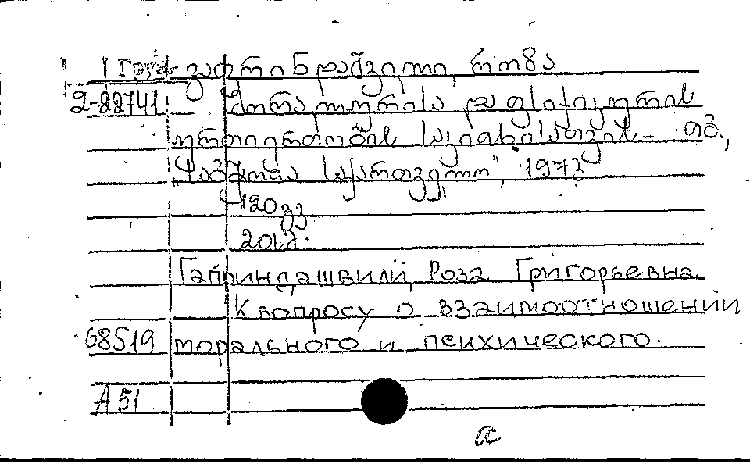 გაფრინდაშვილი, როზა
2-22741
მორალურისა და ფსიქიკურის
ურთიერთობის საკითხისათვის – თბ.,
"საბჭოთა საქართველო", 1972
120 გვ.
20 კ.
Гаприндашвили, Роза Григорьевна
К вопросу о взаимоотношении
68519 морального и психического.
А 51